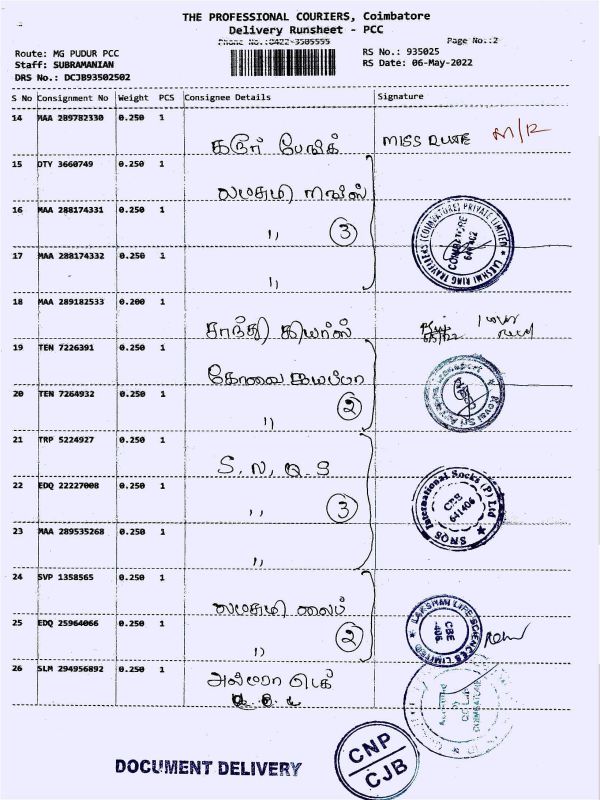 THE PROFESSIONAL COURIERS, Coimbatore
Delivery Runsheet - PCC
Phone No.:0422-3505555
Page No.:2
Route: MG PUDUR PCC
RS No.: 935025
Staff: SUBRAMANIAN
RS Date: 06-May-2022
DRS No.: DCJB93502502
S No Consignment No Weight PCS Consignee Details Signature
14 MAA 289782330 0.250 1
கரூர் MISS ROUTE M/R
15 DTY 3660749 0.250 1
லட்சுமி ரிங்ஸ்
16 MAA 288174331 0.250 1
,, 3
17 MAA 288174332 0.250 1
,,
18 MAA 289182533 0.200 1
சாந்தி கியர்ஸ்
19 TEN 7226391 0.250 1
கோவை
20 TEN 7264932 0.250 1
,, 2
21 TRP 5224927 0.250 1
S.N.Q.S
22 EDQ 22227008 0.250 1
,, 3
23 MAA 289535268 0.250 1
,,
24 SVP 1358565 0.250 1
லட்சுமி லைப்
25 EDQ 25964066 0.250 1
,, 2
26 SLM 294956892 0.250 1
LAKSHMI RING TRAVELLERS (COIMBATORE) PRIVATE LIMITED
COIMBATORE
641402
SNQS International Socks (P) Ltd
CBE
641406
LAKSHMI LIFE SCIENCES LIMITED
CBE
-406.
DOCUMENT DELIVERY
CNP
CJB